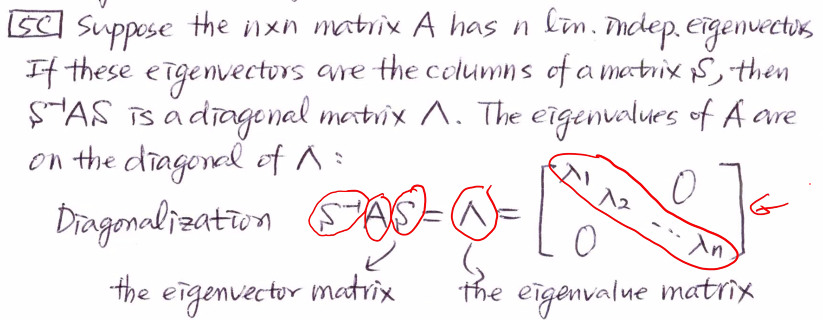 5C Suppose the n×n matrix A has n lin. indep. eigenvectors
If these eigenvectors are the columns of a matrix S, then
S⁻¹AS is a diagonal matrix Λ. The eigenvalues of A are
on the diagonal of Λ:
Diagonalization S⁻¹AS = Λ = [λ1 λ2 ... λn 0 0]
the eigenvector matrix the eigenvalue matrix